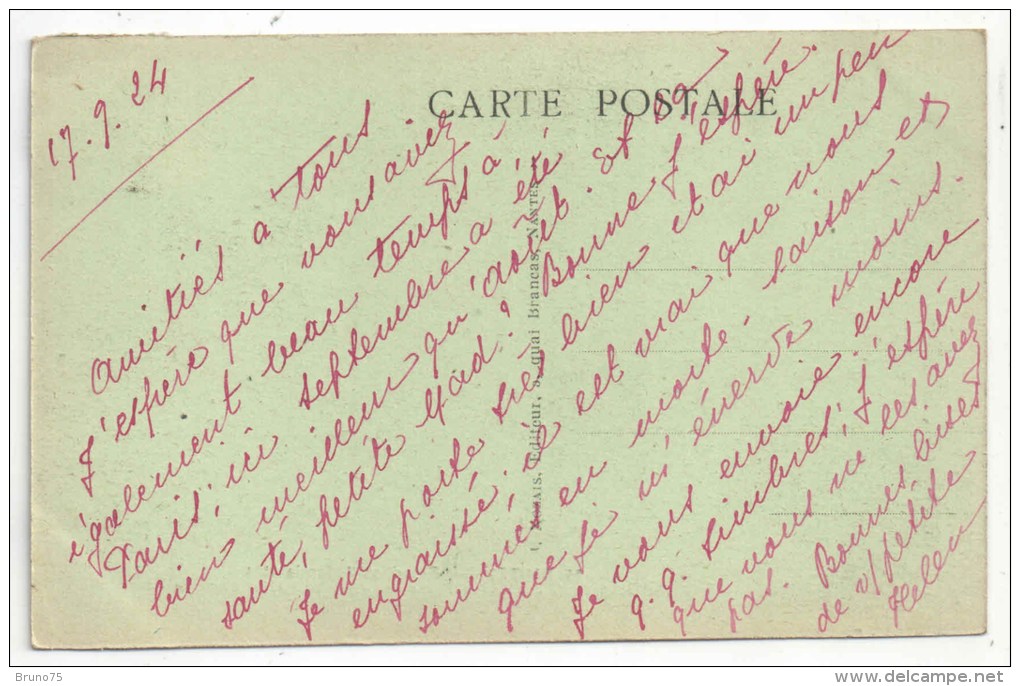 CARTE POSTALE
17.9.24
Amitiés à tous
J'espère que vous avez
également beau temps à
Paris, ici septembre a été
bien meilleur qu'août. Et la
santé, petite Mad? Bonne j'espère.
Je me porte très bien et ai un peu
engraissé, il est vrai que nous
sommes en morte-saison et
que je m'énerve moins.
Je vous envoie encore
q.q. timbres, j'espère
que vous ne les avez
pas. Bonnes bises
de v/petite
Hellen
Editeur, quai Brancas, NANTES
Bruno75
www.delcampe.net